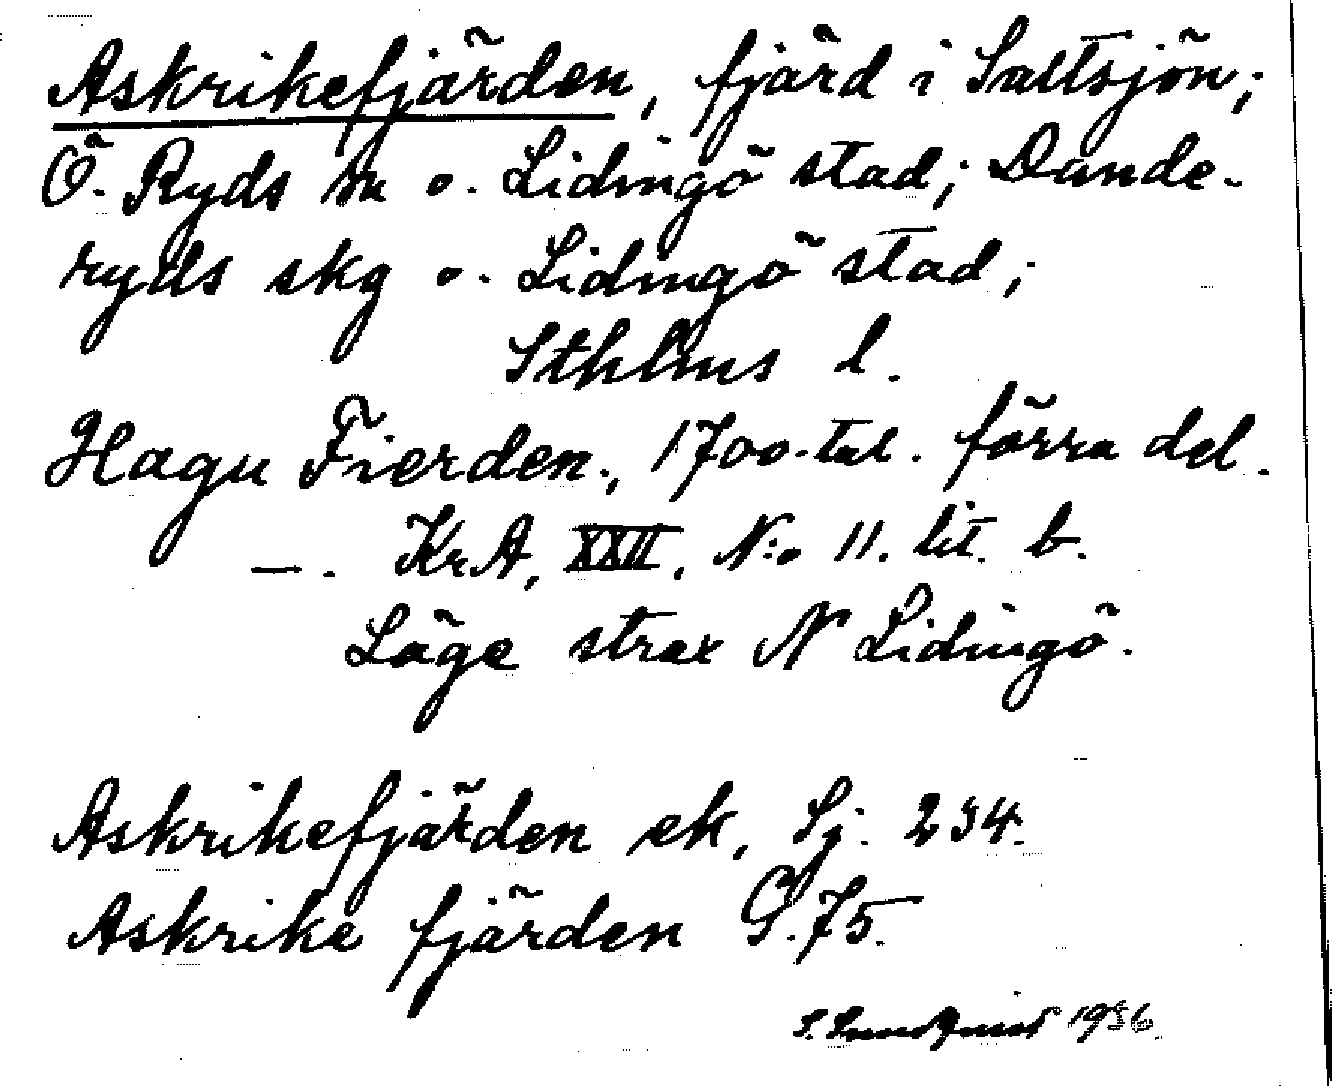 Askrikefjärden, fjärd i Saltsjön;
Ö. Ryds sn o. Lidingö stad; Dande-
ryds skg o. Lidingö stad;
Sthlms l.
Hagu Fierden., 1700-tal. förra del.
—. KrA, XXII, N:o 11. lit. b.
Läge strax N Lidingö.
Askrikefjärden ek, Sj. 234.
Askrike fjärden G. 75.
S. Sundquist 1936